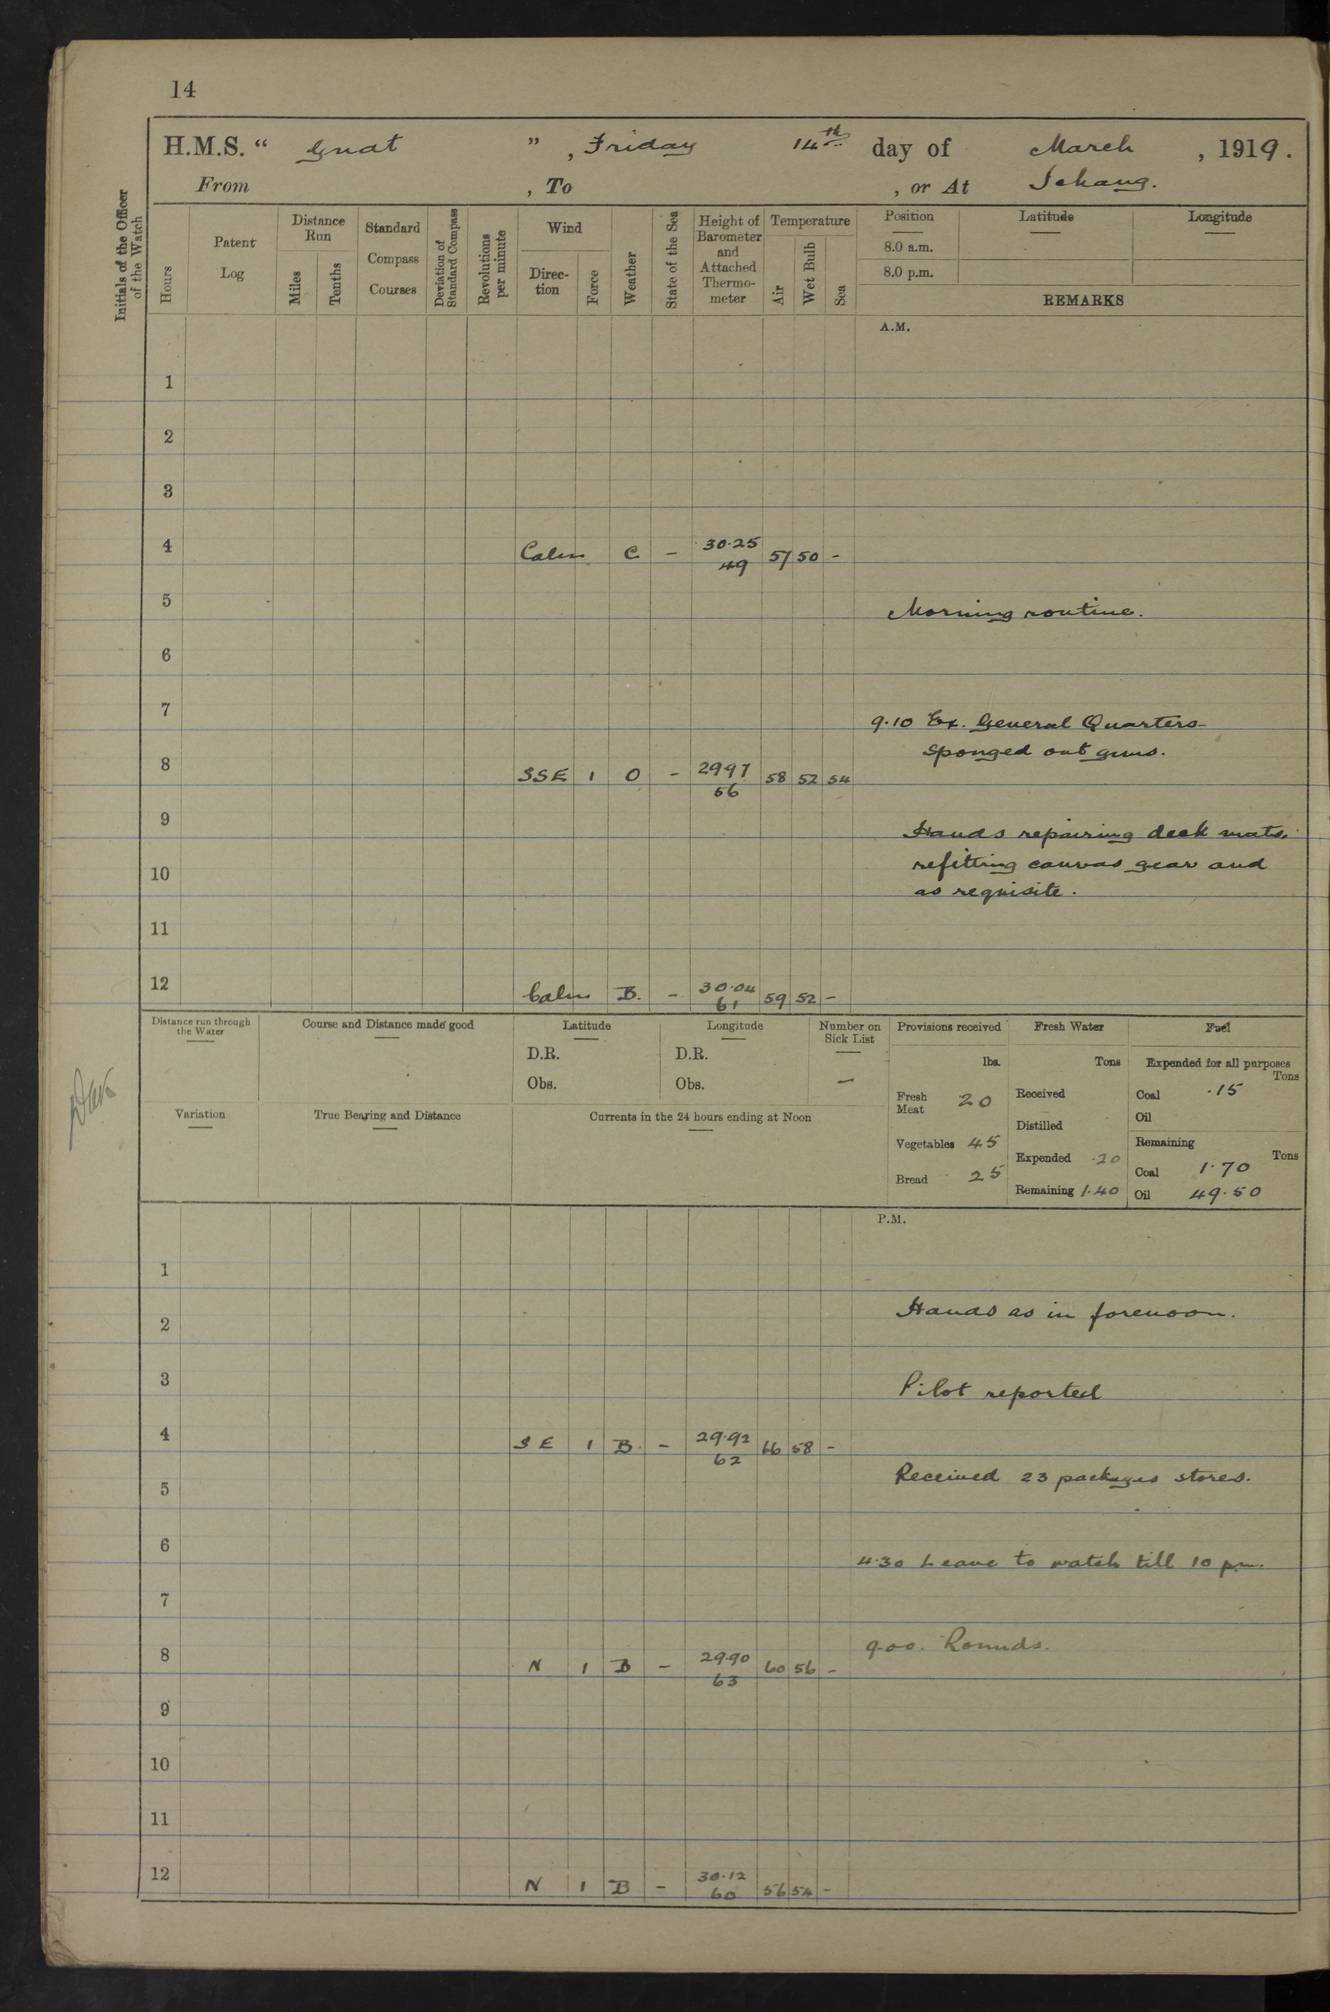 14
H.M.S. “ Gnat ” , Friday 14th day of March , 1919.
From , To , or At Ichang.
Initials of the Officer of the Watch
Hours
Patent Log
Distance Run
Miles
Tenths
Standard Compass Courses
Deviation of Standard Compass
Revolutions per minute
Wind
Direc-tion
Force
Weather
State of the Sea
Height of Barometer and Attached Thermo-meter
Temperature
Air
Wet Bulb
Sea
Position Latitude Longitude
8.0 a.m.
8.0 p.m.
REMARKS
A.M.
1
2
3
4 Calm C - 30.25 49 51 50 -
5 Morning routine.
6
7
9.10 Ex. General Quarters
sponged out guns.
8 SSE 1 O - 2997 56 58 52 54
9 Hands repairing deck mats,
10 refitting canvas gear and
as requisite.
11
12 Calm B. - 30.04 61 59 52 -
Distance run through the Water
Course and Distance made good
Latitude
D.R.
Obs.
Longitude
D.R.
Obs.
Number on Sick List
—
Provisions received
lbs.
Fresh Meat 20
Vegetables 45
Bread 25
Fresh Water
Tons
Received
Distilled
Expended .20
Remaining 1.40
Fuel
Expended for all purposes
Tons
Coal .15
Oil
Remaining
Tons
Coal 1.70
Oil 49.50
Variation
True Bearing and Distance
Currents in the 24 hours ending at Noon
P.M.
1
2 Hands as in forenoon.
3 Pilot reported
4 SE 1 B - 29.92 62 66 58 -
Received 23 packages stores.
5
6 4.30 Leave to watch till 10 pm.
7
8 N 1 B - 2990 63 60 56 -
9.00. Rounds.
9
10
11
12 N 1 B - 30.12 60 56 54 -